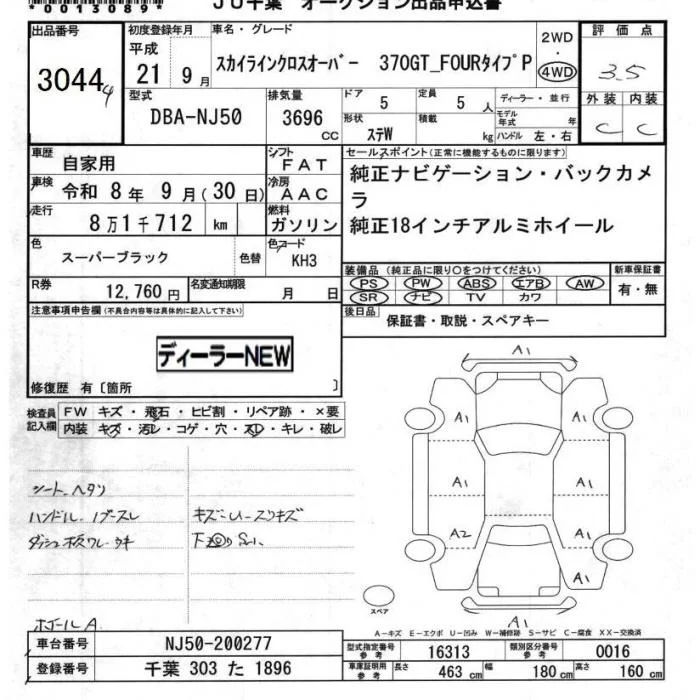 *0013089*
JU千葉 オークション出品申込書
出品番号
3044 4
初度登録年月
平成
21 9 月
車名・グレード
スカイラインクロスオーバー 370GT_FOURタイプP
2WD
・
4WD
評価点
3.5
外装 内装
C C
型式
DBA-NJ50
排気量
3696
CC
ドア
5
定員
5 人
ディーラー・並行
形状
ステW
積載
kg
モデル年式 年
ハンドル 左・右
車歴
自家用
シフト
FAT
セールスポイント(正常に機能するものに限ります)
純正ナビゲーション・バックカメ
ラ
純正18インチアルミホイール
車検
令和 8 年 9 月(30 日)
冷房
AAC
走行
8万1千712 km
燃料
ガソリン
色
スーパーブラック
色替
色コード
KH3
装備品(純正品に限り○をつけてください)
PS PW ABS エアB AW
SR ナビ TV カワ
新車保証書
有・無
R券
12,760 円
名変通知期限
月 日
後日品
保証書・取説・スペアキー
注意事項申告欄(不具合内容等は具体的に記入して下さい)
ディーラーNEW
修復歴 有〔箇所 〕
検査員
記入欄
FW キズ・飛石・ヒビ割・リペア跡・×要
内装 キズ・汚レ・コゲ・穴・スレ・キレ・破レ
シート ヘタリ
ハンドル
ダッシュ
キズ・U・スリキズ
下廻り S
ホイールA
A1
A1 A1
A1 A1
A2 A1
A1
A1
スペア
A-キズ E-エクボ U-凹み W-補修跡 S-サビ C-腐食 XX-交換済
車台番号
NJ50-200277
登録番号
千葉 303 た 1896
型式指定番号
参考
16313
類別区分番号
参考
0016
車庫証明用
参考
長さ
463 cm
幅
180 cm
高さ
160 cm